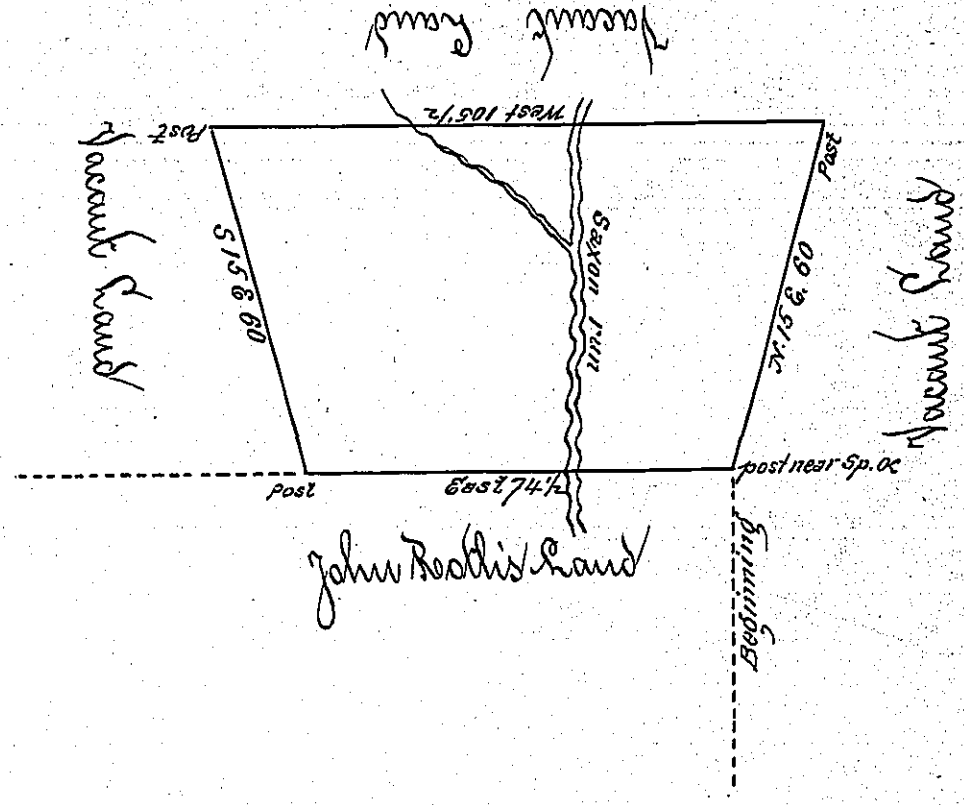 Vacant Land
West 105 1/2
Post
Post
Vacant Land
S 15 E 60
Saxon run
N. 15 E. 60
Vacant Land
Post
East 74 1/2
post near Sp. oc
John
Land
Beginning